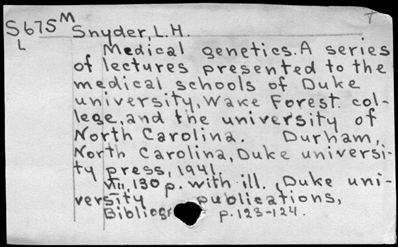 S675 M Snyder, L.H. T
L Medical genetics. A series
of lectures presented to the
medical schools of Duke
university, Wake Forest col-
lege, and the university of
North Carolina. Durham,
North Carolina, Duke universi-
ty press, 1941.
VIII, 130 p. with ill. (Duke uni-
versity publications,
Bibliogr p. 123-124.